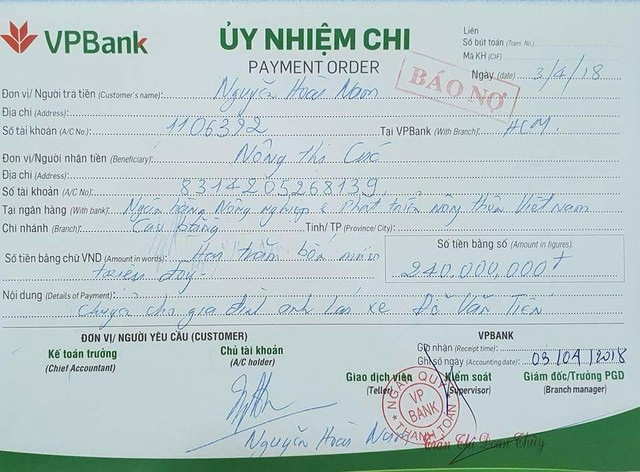 VPBank
ỦY NHIỆM CHI
PAYMENT ORDER
Liên
Số bút toán (Trans. No.)
Mã KH (CIF)
Ngày (date) 3/4/18
BÁO NỢ
Đơn vị/ Người trả tiền (Customer's name): Nguyễn Hoài Nam
Địa chỉ (Address):
Số tài khoản (A/C No.): 1106392 Tại VPBank (With Branch): HCM.
Đơn vị/Người nhận tiền (Beneficiary): Nông Thị Cúc
Địa chỉ (Address):
Số tài khoản (A/C No): 8314205268139
Tại ngân hàng (With bank): Ngân hàng Nông nghiệp & Phát triển nông thôn Việt Nam
Chi nhánh (Branch): Cao Bằng Tỉnh/ TP (Province/ City):
Số tiền bằng chữ VND (Amount in words): Hai trăm bốn mươi
triệu đồng
Số tiền bằng số (Amount in figures):
240,000,000đ
Nội dung (Details of Payment): Chuyển cho gia đình anh lái xe Đỗ Văn Tiến
ĐƠN VỊ/ NGƯỜI YÊU CẦU (CUSTOMER)
VPBANK
Kế toán trưởng
(Chief Accountant)
Chủ tài khoản
(A/C holder)
Giờ nhận (Receipt time):
Ghi sổ ngày (Accounting date): 03/04/2018
Giao dịch viên
(Teller)
Kiểm soát
(Supervisor)
Giám đốc/Trưởng PGD
(Branch manager)
NGÂN QUỸ
VP
BANK
THANH TOÁN
Nguyễn Hoài Nam